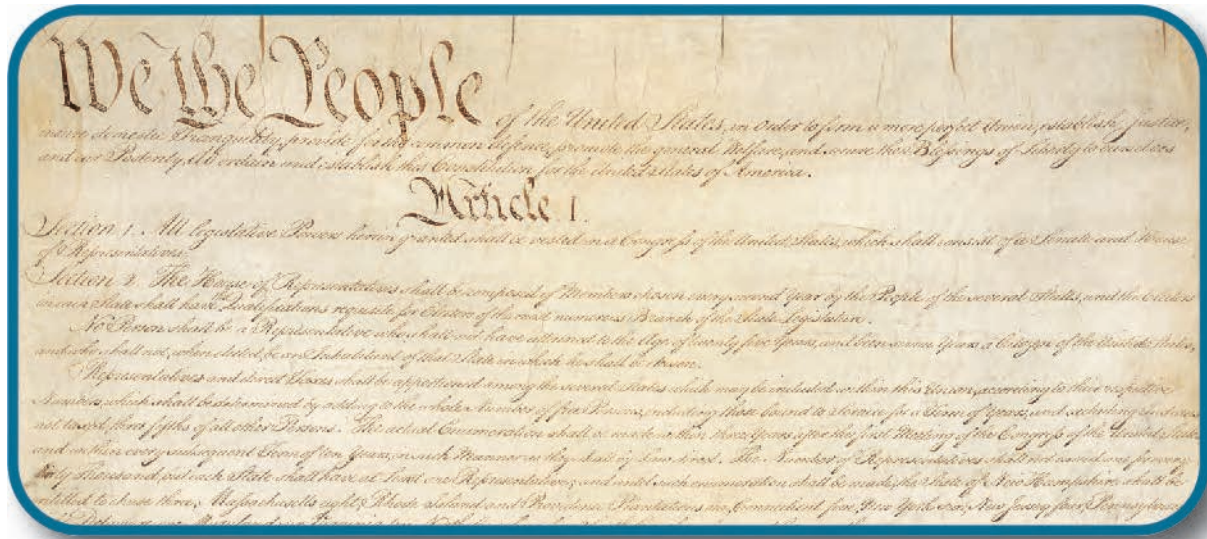 We the People of the United States, in Order to form a more perfect Union, establish Justice,
insure domestic Tranquility, provide for the common defence, promote the general Welfare, and secure the Blessings of Liberty to ourselves
and our Posterity, do ordain and establish this Constitution for the United States of America.
Article. I.
Section. 1. All legislative Powers herein granted shall be vested in a Congress of the United States, which shall consist of a Senate and House
of Representatives.
Section. 2. The House of Representatives shall be composed of Members chosen every second Year by the People of the several States, and the Electors
in each State shall have the Qualifications requisite for Electors of the most numerous Branch of the State Legislature.
No Person shall be a Representative who shall not have attained to the Age of twenty five Years, and been seven Years a Citizen of the United States,
and who shall not, when elected, be an Inhabitant of that State in which he shall be chosen.
Representatives and direct Taxes shall be apportioned among the several States which may be included within this Union, according to their respective
Numbers, which shall be determined by adding to the whole Number of free Persons, including those bound to Service for a Term of Years, and excluding Indians
not taxed, three fifths of all other Persons. The actual Enumeration shall be made within three Years after the first Meeting of the Congress of the United States,
and within every subsequent Term of ten Years, in such Manner as they shall by Law direct. The Number of Representatives shall not exceed one for every
thirty Thousand, but each State shall have at Least one Representative; and until such enumeration shall be made, the State of New Hampshire shall be
entitled to chuse three, Massachusetts eight, Rhode Island and Providence Plantations one, Connecticut five, New York six, New Jersey four, Pennsylvania